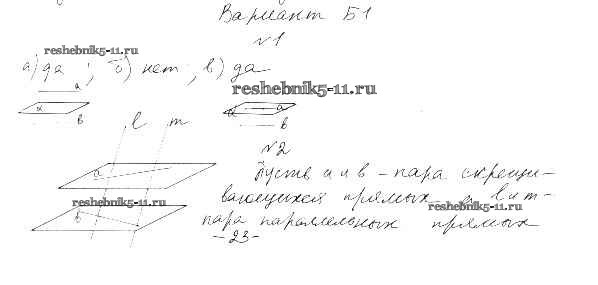 Вариант Б1
№1
reshebnik5-11.ru
а) да ; б) нет ; в) да
а
reshebnik5-11.ru
α
в
α
а
в
l m
№2
а
Пусть а и в - пара скрещи-
вающихся прямых, а l и m -
reshebnik5-11.ru
reshebnik5-11.ru
в
пара параллельных прямых
-23-